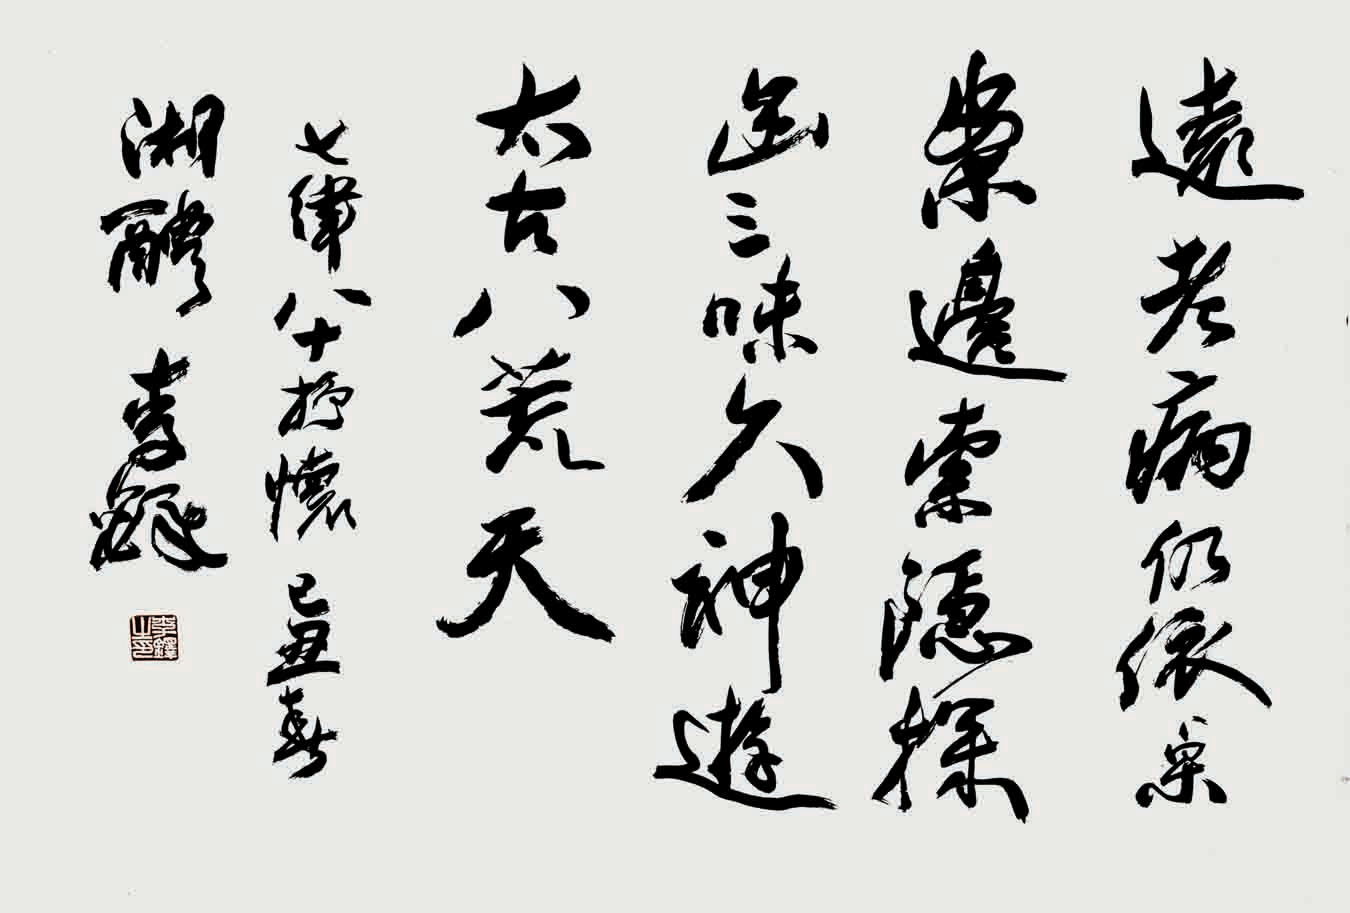 遠老病仍依桌
案邊索隱探
幽三味久神遊
太古八荒天
七律八十抒懷 己丑春
湘醴 李鐸
李鐸之印